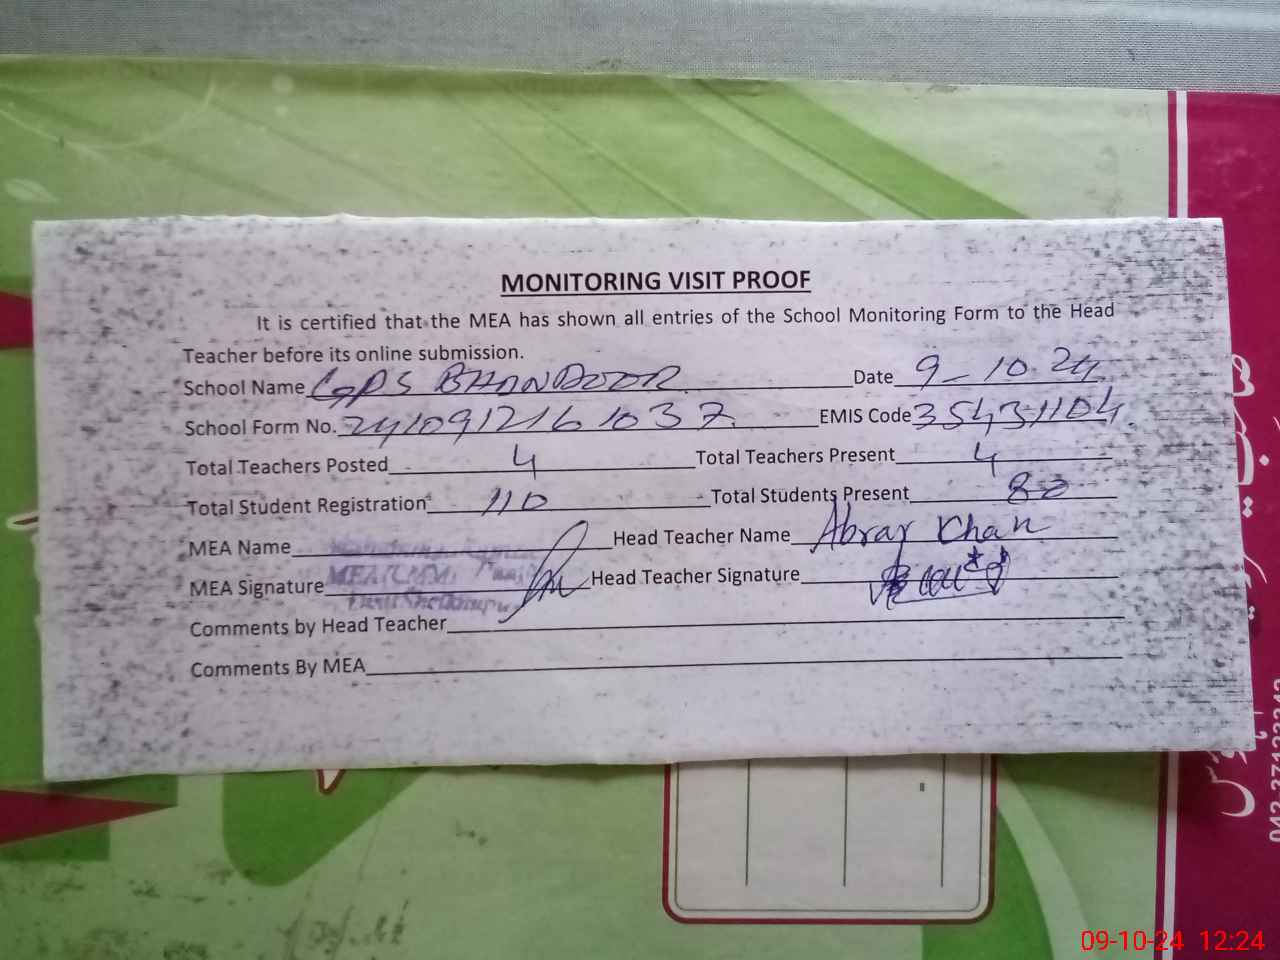 MONITORING VISIT PROOF
It is certified that the MEA has shown all entries of the School Monitoring Form to the Head
Teacher before its online submission.
School Name GPS BHANDOOR Date 9-10-24
School Form No. 241091216 1037 EMIS Code 35431104
Total Teachers Posted 4 Total Teachers Present 4
Total Student Registration 110 Total Students Present 80
MEA Name Head Teacher Name Abrar Khan
MEA Signature Head Teacher Signature
Comments by Head Teacher
Comments By MEA
09-10-24 12:24